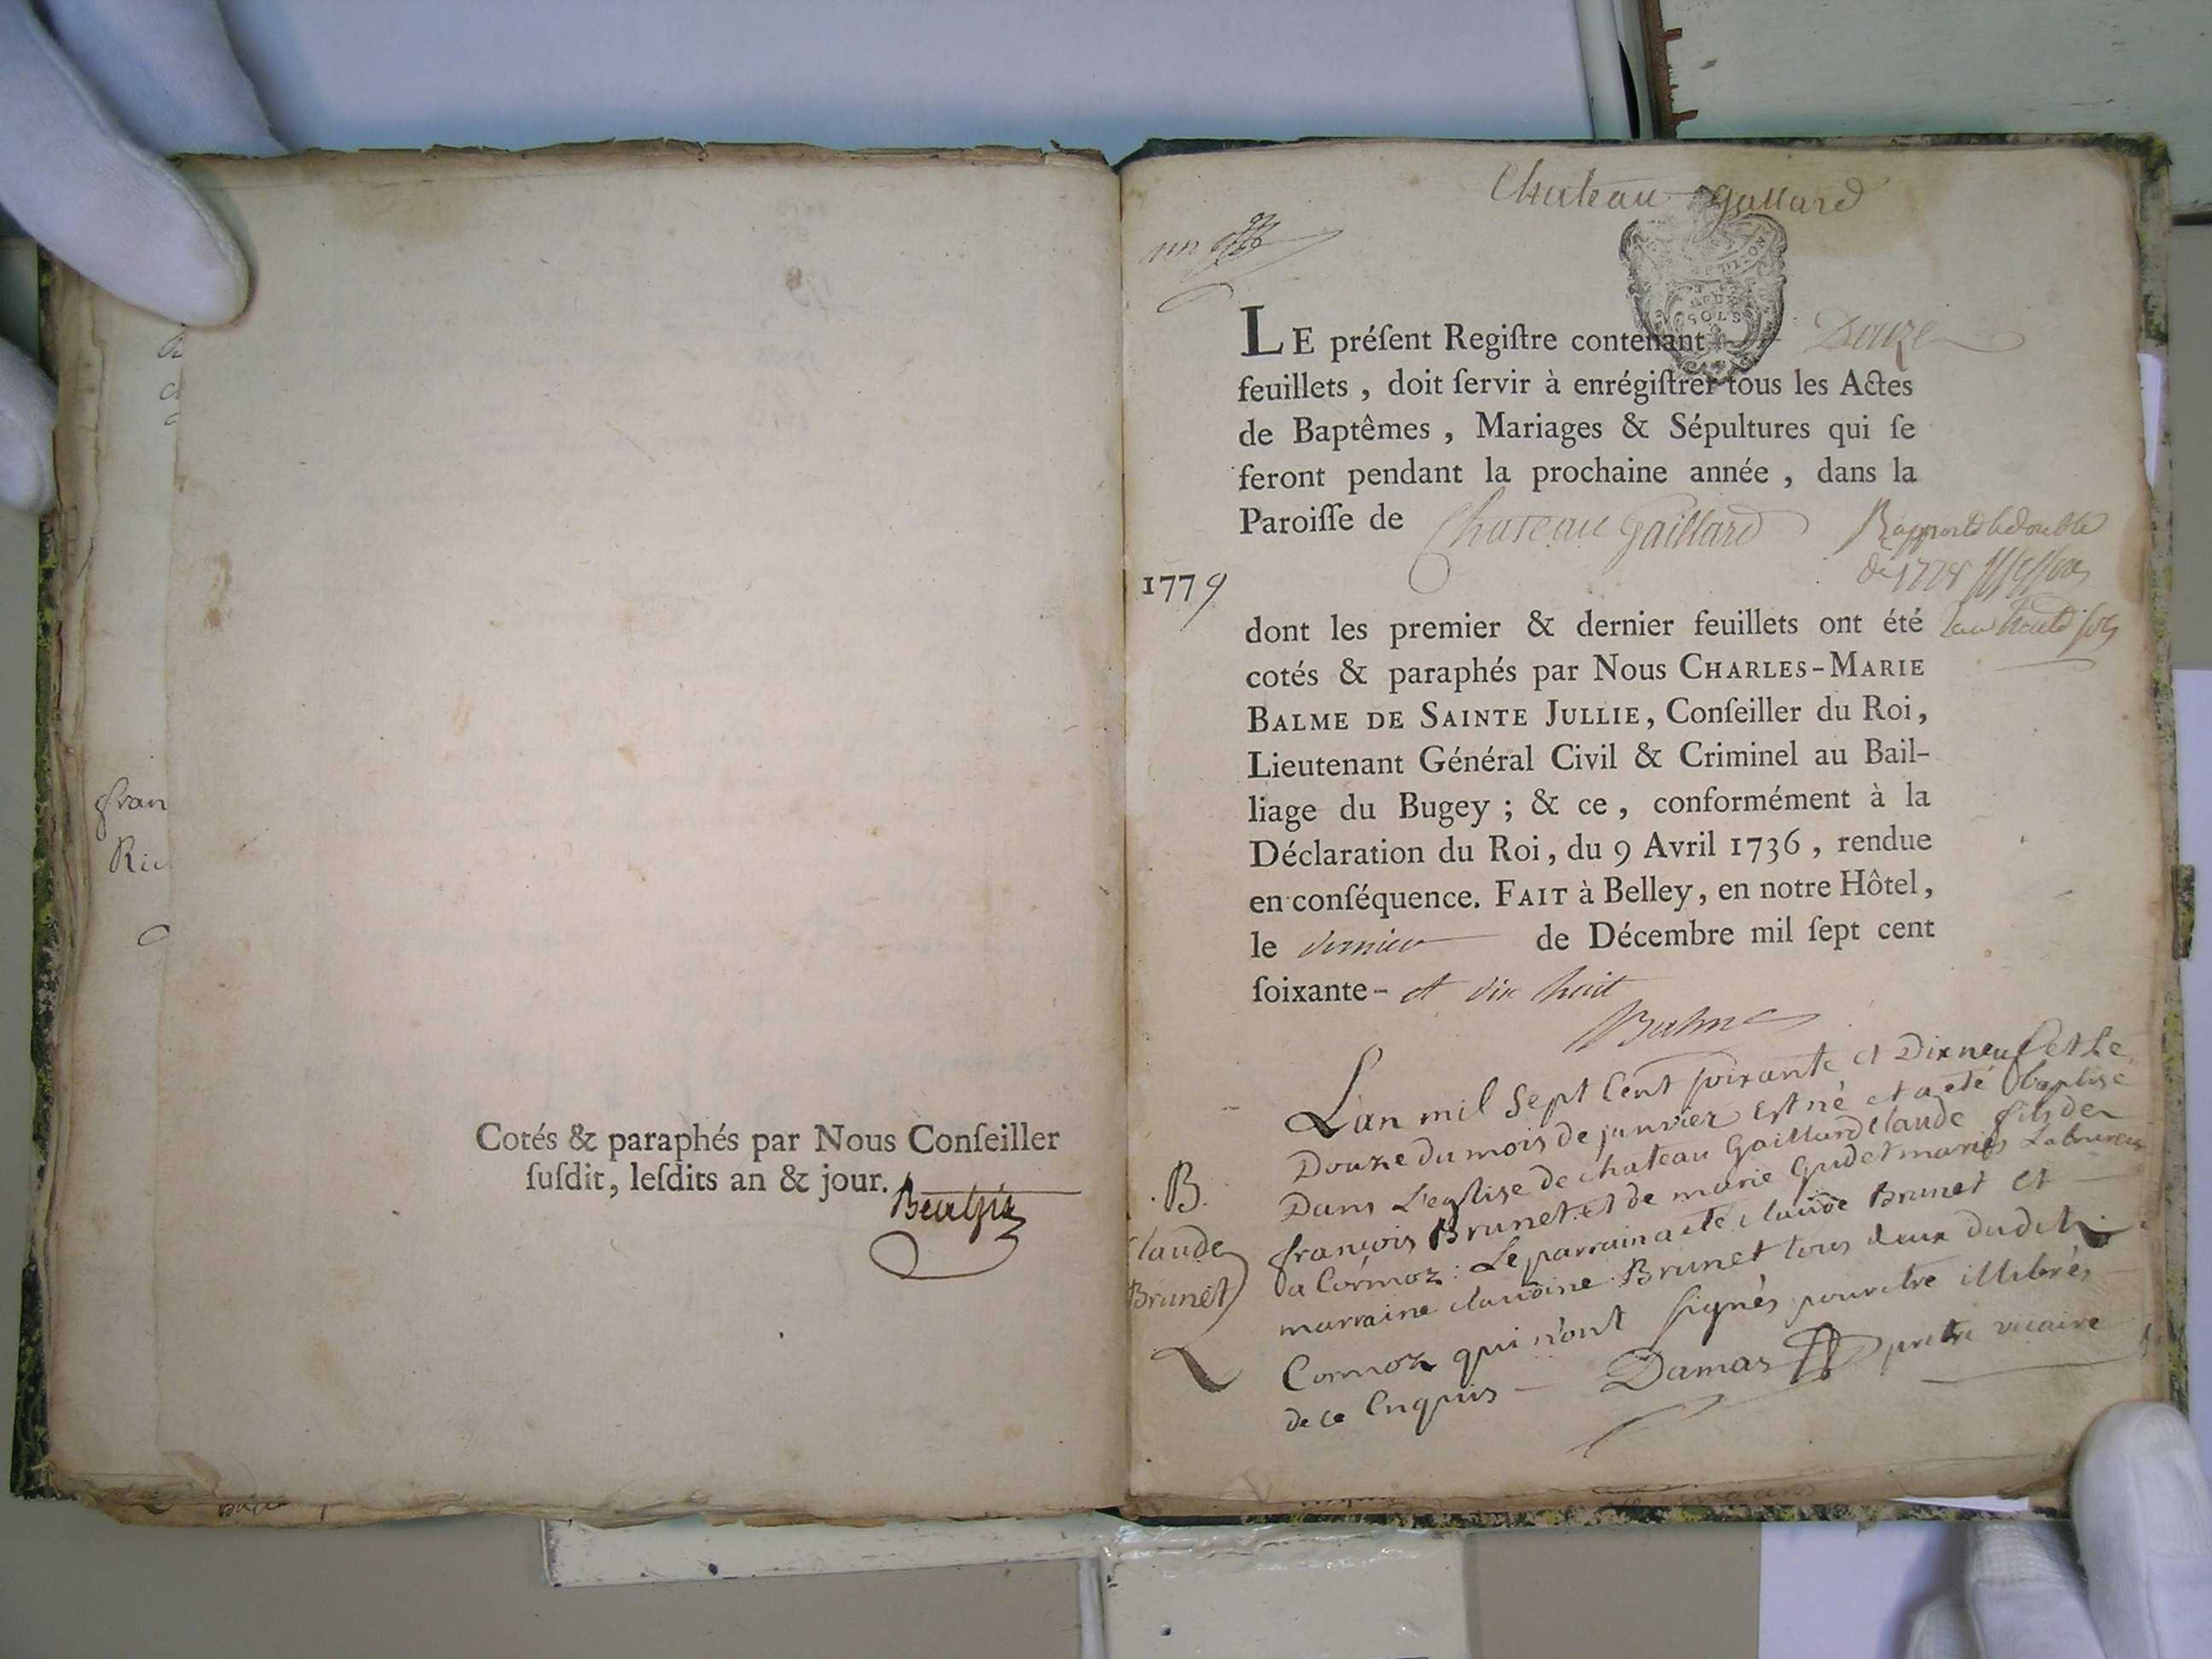 fran
Ric
Cotés & paraphés par Nous Conſeiller
ſuſdit, leſdits an & jour.
Chateau Gallard
un
SOLS
LE préſent Regiſtre contenant Douze
feuillets, doit ſervir à enrégiſtrer tous les Actes
de Baptêmes, Mariages & Sépultures qui ſe
feront pendant la prochaine année, dans la
Paroiſſe de Chateau Gaillard
Rapporté le double
de 1778
1779
dont les premier & dernier feuillets ont été
cotés & paraphés par Nous CHARLES-MARIE
BALME DE SAINTE JULLIE, Conſeiller du Roi,
Lieutenant Général Civil & Criminel au Bail-
liage du Bugey; & ce, conformément à la
Déclaration du Roi, du 9 Avril 1736, rendue
en conſéquence. FAIT à Belley, en notre Hôtel,
le dernier de Décembre mil ſept cent
ſoixante- et dix huit
Balme
L'an mil Sept Cent soixante et Dix neuf et Le
Douze du mois de janvier est né et a eté baptisé
Dans L'eglise de chateau Gaillard Claude fils de
françois Brunet et de marie Gudet mariés Laboureur
a Cormoz: Le parrain a eté claude Brunet et
marraine claudine Brunet tous deux dudit
Cormoz qui n'ont signés pour etre illitérés
de ce Enquis Damas pretre vicaire
B.
Claude
Brunet